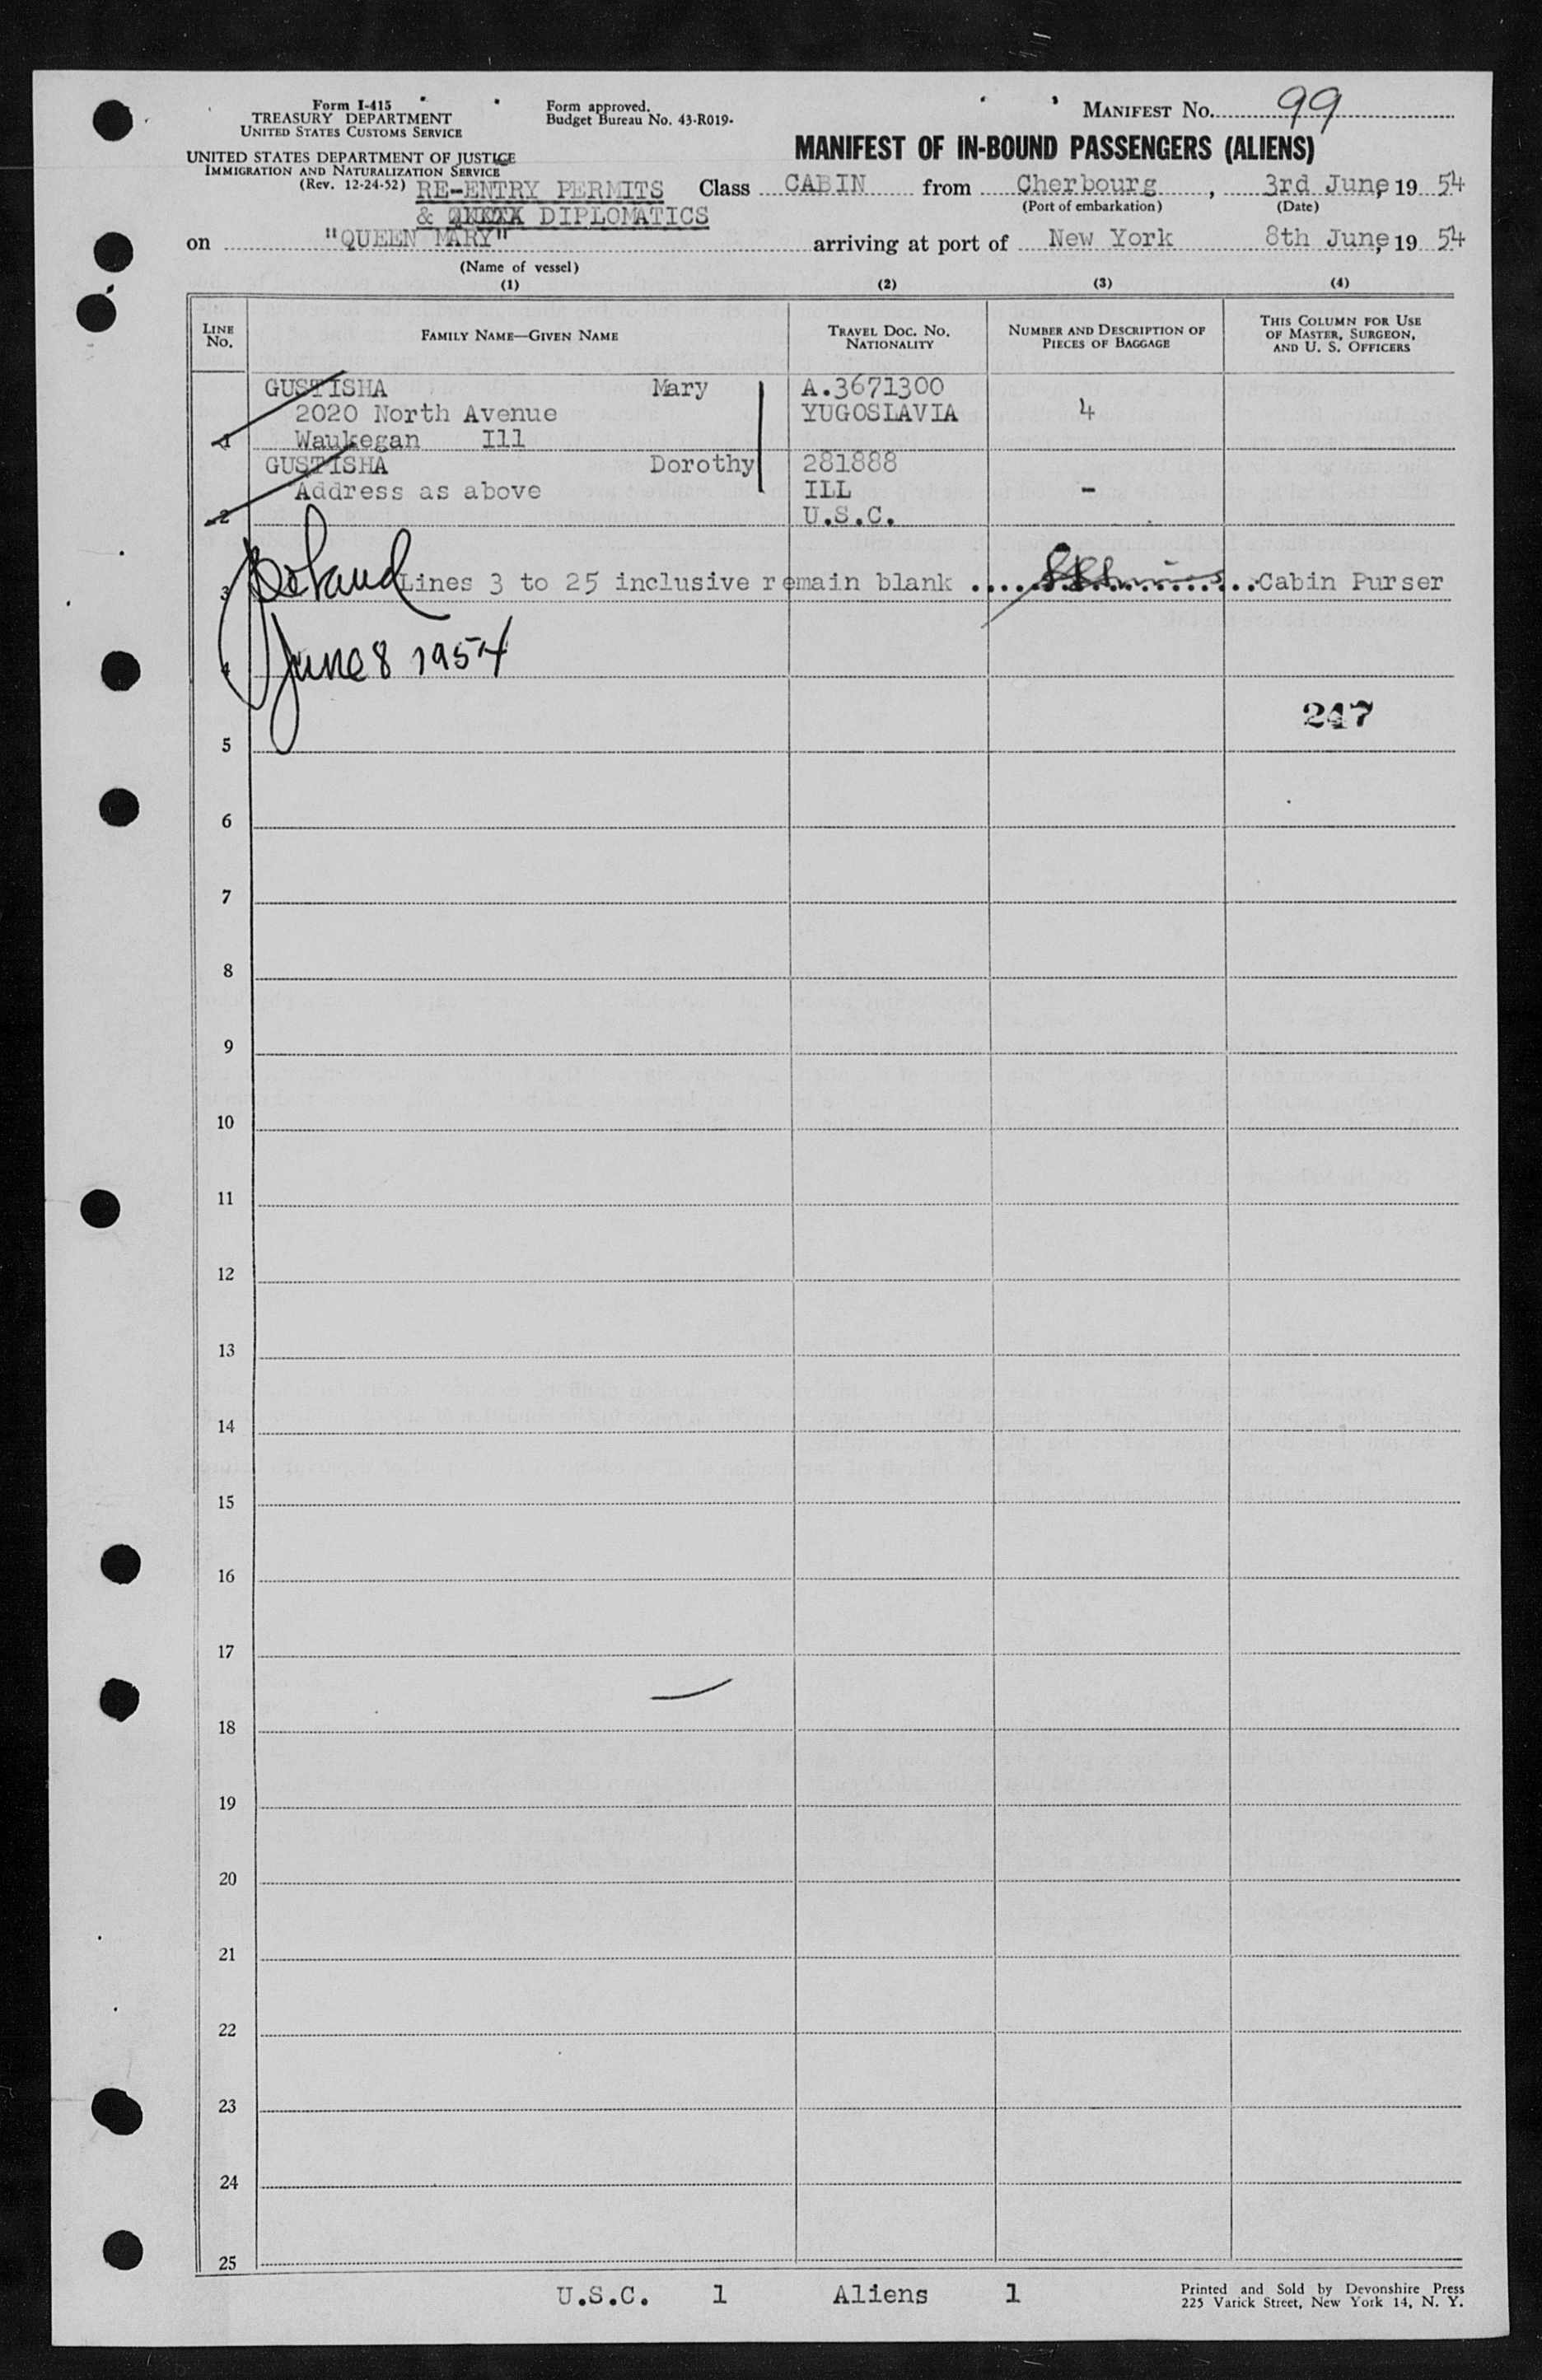 Form I-415
TREASURY DEPARTMENT
UNITED STATES CUSTOMS SERVICE
Form approved.
Budget Bureau No. 43-R019-
MANIFEST NO. 99
UNITED STATES DEPARTMENT OF JUSTICE
IMMIGRATION AND NATURALIZATION SERVICE
(Rev. 12-24-52)
MANIFEST OF IN-BOUND PASSENGERS (ALIENS)
RE-ENTRY PERMITS
& DIPLOMATICS
Class CABIN from Cherbourg, 3rd June, 19 54
(Port of embarkation) (Date)
on "QUEEN MARY" arriving at port of New York 8th June, 19 54
(Name of vessel)
(1) (2) (3) (4)
LINE NO.
FAMILY NAME—GIVEN NAME
TRAVEL DOC. NO.
NATIONALITY
NUMBER AND DESCRIPTION OF
PIECES OF BAGGAGE
THIS COLUMN FOR USE
OF MASTER, SURGEON,
AND U. S. OFFICERS
GUSTISHA Mary A.3671300
2020 North Avenue YUGOSLAVIA 4
1 Waukegan Ill
GUSTISHA Dorothy 281888
Address as above ILL -
2 U.S.C.
3 Lines 3 to 25 inclusive remain blank Cabin Purser
4 June 8 1954
247
5
6
7
8
9
10
11
12
13
14
15
16
17
18
19
20
21
22
23
24
25
U.S.C. 1 Aliens 1
Printed and Sold by Devonshire Press
225 Varick Street, New York 14, N. Y.